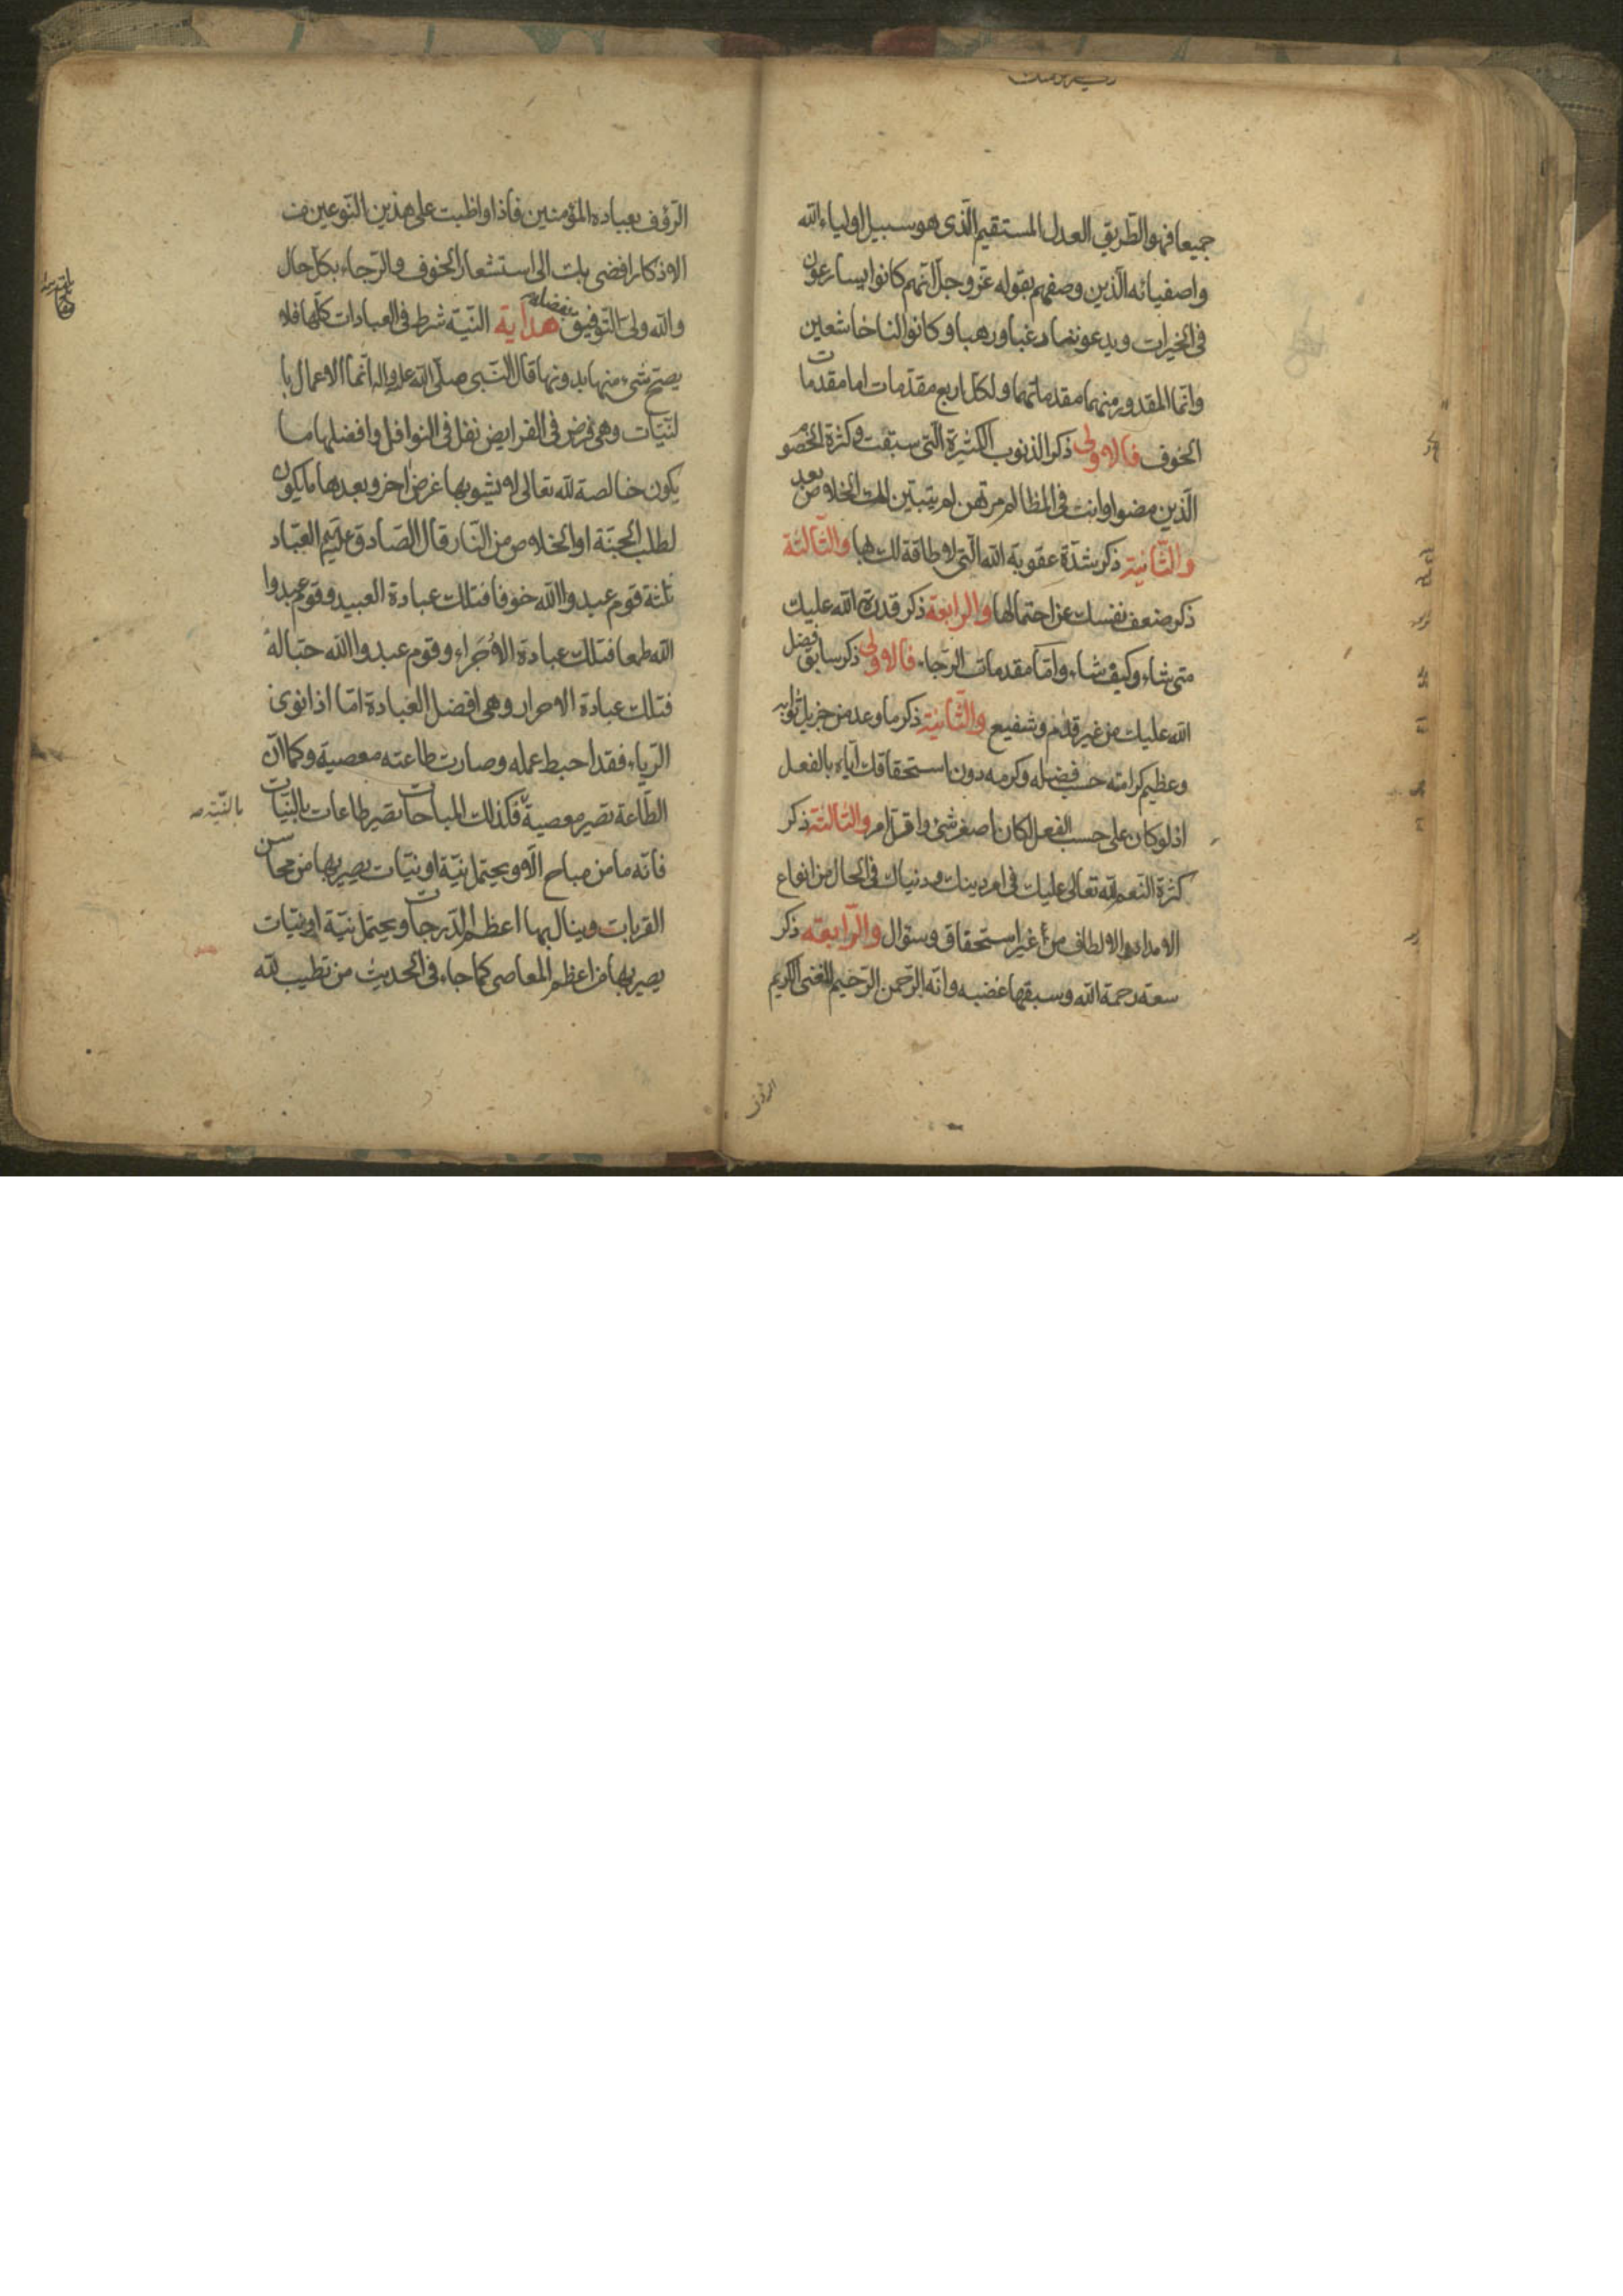 جميعا فهو الطّريق العدل المستقيم الّذى هو سبيل اولياء الله
واصفيائه الّذين وصفهم بقوله عزّ وجلّ انّهم كانوا يسارعون
فى الخيرات ويدعوننا رغبا ورهبا وكانوا لنا خاشعين
وانّما المقدور منهما مقدماتهما ولكلّ اربع مقدّمات اما مقدمات
الخوف فالاولى ذكر الذنوب الكثيرة الّتى سبقت وكثرة الخصوم
الّذين مضوا وانت فى المظالم مرتهن لم يتبيّن لك الخلاص بعد
والثّانية ذكر شدّة عقوبة الله الّتى لا طاقة لك بها والثّالثة
ذكر ضعف نفسك عن احتمالها والرابعة ذكر قدرة الله عليك
متى شاء وكيف شاء وامّا مقدمات الرّجاء فالاولى ذكر سابق فضل
الله عليك من غير قدم وشفيع والثّانية ذكر ما وعد من جزيل ثوابه
وعظيم كرامته حسب فضله وكرمه دون استحقاقك ايّاه بالفعل
اذ لو كان على حسب الفعل لكان اصغر شئ واقل امر والثالثة ذكر
كثرة النّعم لله تعالى عليك فى امر دينك ودنياك فى الحال من انواع
الامداد والالطاف من غير استحقاق وسؤال والرّابعة ذكر
سعة رحمة الله وسبقها غضبه وانّه الرّحمن الرّحيم الغنى الكريم
الرؤف
الرّؤف بعباده المؤمنين فاذا واظبت على هذين النّوعين من
الاذكار افضى بك الى استشعار الخوف والرّجاء بكلّ حال
والله ولىّ التّوفيق بفضله هداية النّيّة شرط فى العبادات كلّها فلا
يصحّ شئ منها بدونها قال النّبى صلّى الله عليه واله انّما الاعمال با
لنّيّات وهى فرض فى الفرايض نفل فى النوافل وافضلها ما
يكون خالصة لله تعالى لا يشوبها غرض اخر وبعدها ما يكون
لطلب الجنّة او الخلاص من النّار قال الصّادق عليه السلم العبّاد
ثلثة قوم عبدوا الله خوفا فتلك عبادة العبيد وقوم عبدوا
الله طمعا فتلك عبادة الاُجَراء وقوم عبدوا الله حبّا له
فتلك عبادة الاحرار وهى افضل العبادة امّا اذا نوى
الرّياء فقد احبط عمله وصارت طاعته معصية وكما انّ
الطّاعة تصير معصية فكذلك المباحات تصير طاعات بالنّيّات
بالنّيّة
فانّه ما من مباح الّا ويحتمل نيّة او نيّات يصير بها من محاسن
القربات وينال بها اعظم الدّرجات ويحتمل نيّة او نيّات
يصير بها من اعظم المعاصى كما جاء فى الحديث من تطيب لله